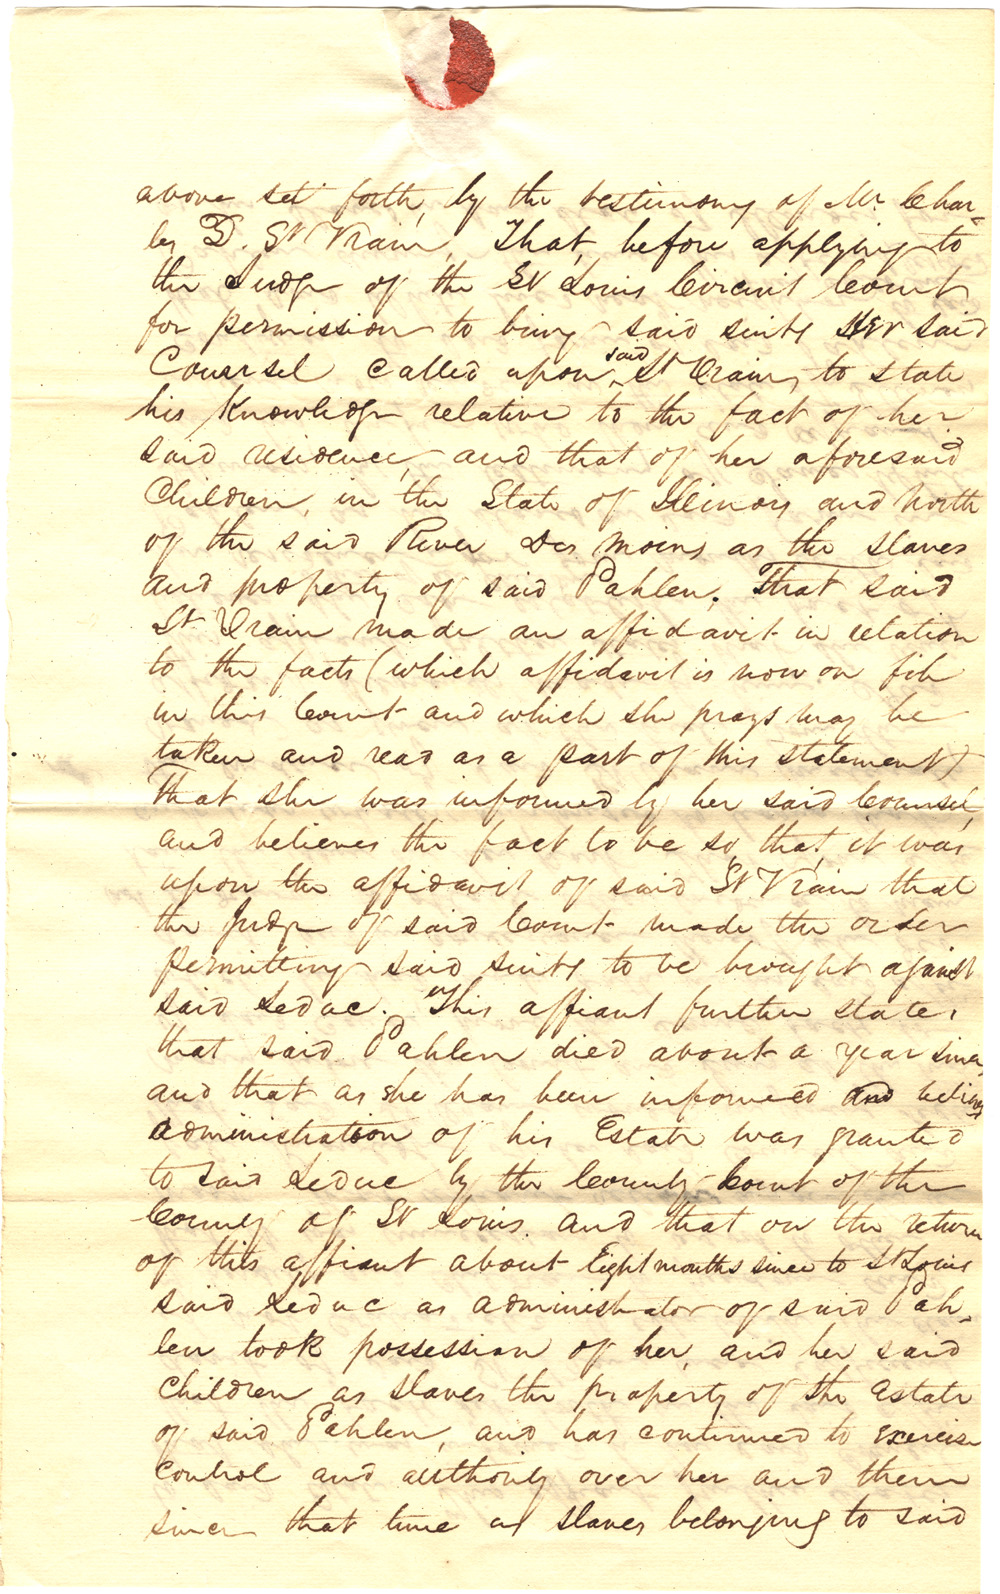 above set forth, by the testimony of Mr. Char-
les D. St Vrain, That, before applying to
the Judge of the St Louis Circuit Court
for permission to bring said suits Her said
Counsel called upon said St Vrain, to state
his Knowledge relative to the fact of her
said residence, and that of her aforesaid
Children, in the State of Illinois and North
of the said River Des Moins as the slaves
and property of said Pahlen. That said
St Vrain made an affidavit in relation
to the facts (which affidavit is now on file
in this Court and which she prays may be
taken and read as a part of this statement)
That she was informed by her said Counsel,
and believes the fact to be so, that, it was
upon the affidavit of said St. Vrain that
the Judge of said Court made the order
permitting said suits to be brought against
said Leduc. This affiant further states
that said Pahlen died about a year since,
and that as she has been informed and believes
administration of his Estate was granted
to said Leduc by the County Court of the
County of St Louis. and that on the return
of this affiant about Eight months since to St Louis
said Leduc as administrator of said Pah-
len took possession of her, and her said
Children as slaves the property of the Estate
of said Pahlen, and has continued to exercise
control and authority over her and them
since that time as slaves belonging to said